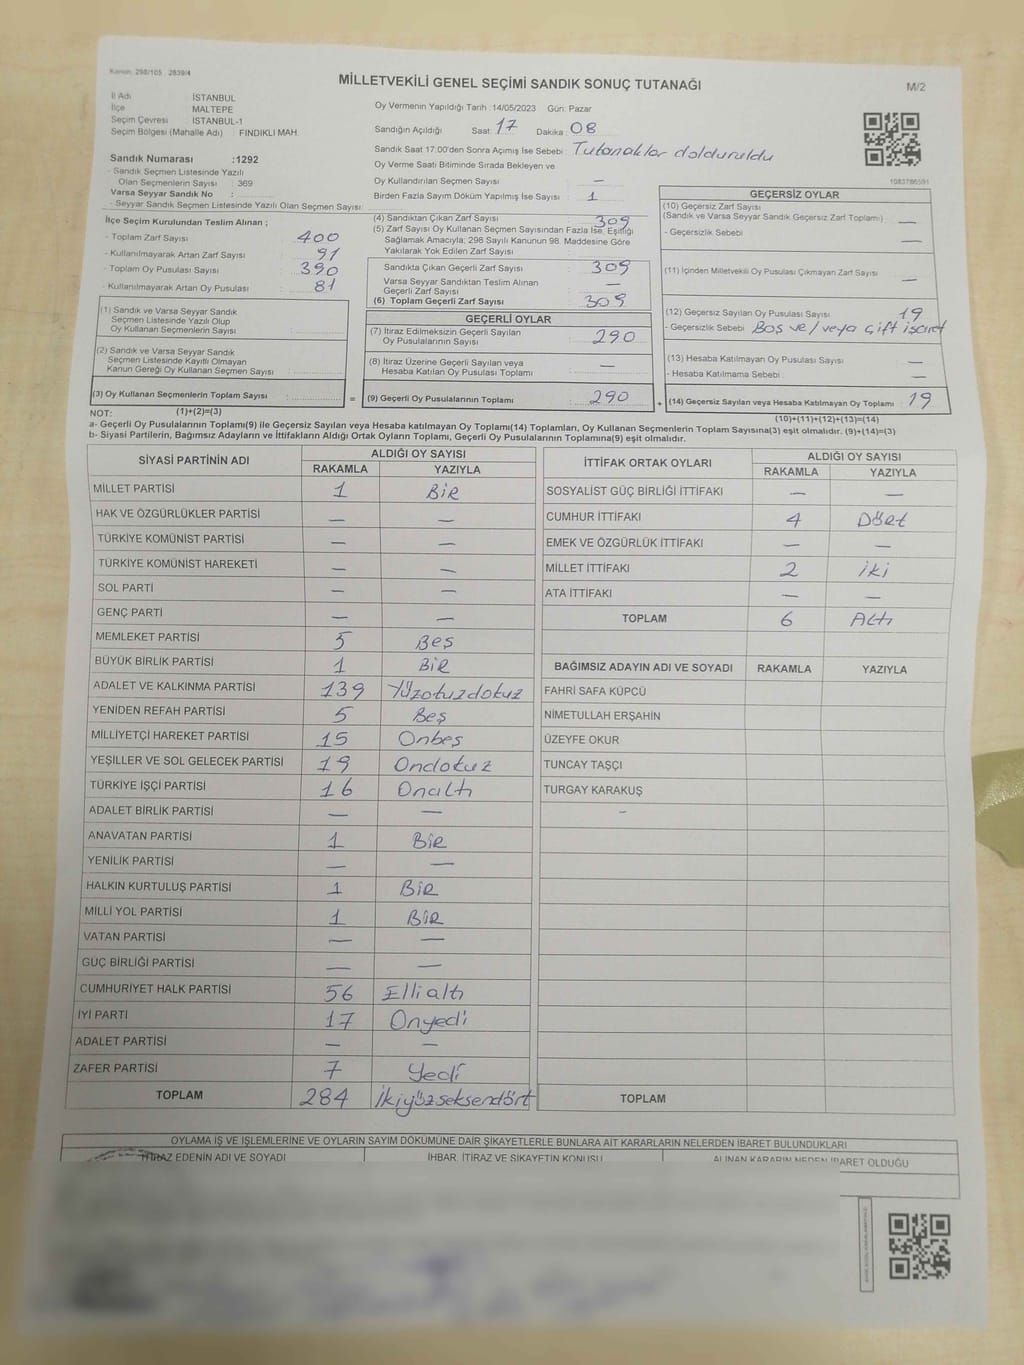 Kanun: 298/105 2839/4
MİLLETVEKİLİ GENEL SEÇİMİ SANDIK SONUÇ TUTANAĞI
M/2
İl Adı : İSTANBUL
İlçe : MALTEPE
Seçim Çevresi : İSTANBUL-1
Seçim Bölgesi (Mahalle Adı) : FINDIKLI MAH.
Sandık Numarası :1292
- Sandık Seçmen Listesinde Yazılı
Olan Seçmenlerin Sayısı : 369
Varsa Seyyar Sandık No :
- Seyyar Seçmen Listesinde Yazılı Olan Seçmen Sayısı:
Oy Vermenin Yapıldığı Tarih : 14/05/2023 Gün: Pazar
Sandığın Açıldığı Saat 17 Dakika 08
Sandık Saat 17.00'den Sonra Açımış İse Sebebi: Tutanaklar dolduruldu
Oy Verme Saati Bitiminde Sırada Bekleyen ve
Oy Kullandırılan Seçmen Sayısı —
Birden Fazla Sayım Döküm Yapılmış İse Sayısı : 1
1083786591
İlçe Seçim Kurulundan Teslim Alınan ;
- Toplam Zarf Sayısı : 400
- Kullanılmayarak Artan Zarf Sayısı : 91
- Toplam Oy Pusulası Sayısı : 390
- Kullanılmayarak Artan Oy Pusulası : 81
(1) Sandık ve Varsa Seyyar Sandık
Seçmen Listesinde Yazılı Olup
Oy Kullanan Seçmenlerin Sayısı :
(2) Sandık ve Varsa Seyyar Sandık
Seçmen Listesinde Kayıtlı Olmayan
Kanun Gereği Oy Kullanan Seçmen Sayısı :
(3) Oy Kullanan Seçmenlerin Toplam Sayısı : =
(4) Sandıktan Çıkan Zarf Sayısı : 309
(5) Zarf Sayısı Oy Kullanan Seçmen Sayısından Fazla İse, Eşitliği
Sağlamak Amacıyla; 298 Sayılı Kanunun 98. Maddesine Göre
Yakılarak Yok Edilen Zarf Sayısı :
Sandıkta Çıkan Geçerli Zarf Sayısı : 309
Varsa Seyyar Sandıktan Teslim Alınan
Geçerli Zarf Sayısı : —
(6) Toplam Geçerli Zarf Sayısı : 309
GEÇERLİ OYLAR
(7) İtiraz Edilmeksizin Geçerli Sayılan
Oy Pusulalarının Sayısı : 290
(8) İtiraz Üzerine Geçerli Sayılan veya
Hesaba Katılan Oy Pusulası Toplamı : —
(9) Geçerli Oy Pusulalarının Toplamı : 290 +
GEÇERSİZ OYLAR
(10) Geçersiz Zarf Sayısı
(Sandık ve Varsa Seyyar Sandık Geçersiz Zarf Toplamı) : —
- Geçersizlik Sebebi : —
(11) İçinden Milletvekili Oy Pusulası Çıkmayan Zarf Sayısı : —
(12) Geçersiz Sayılan Oy Pusulası Sayısı : 19
- Geçersizlik Sebebi : Boş ve/veya Çift işaret
(13) Hesaba Katılmayan Oy Pusulası Sayısı : —
- Hesaba Katılmama Sebebi : —
(14) Geçersiz Sayılan veya Hesaba Katılmayan Oy Toplamı : 19
NOT: (1)+(2)=(3)
(10)+(11)+(12)+(13)=(14)
a- Geçerli Oy Pusulalarının Toplamı(9) ile Geçersiz Sayılan veya Hesaba katılmayan Oy Toplamı(14) Toplamları, Oy Kullanan Seçmenlerin Toplam Sayısına(3) eşit olmalıdır. (9)+(14)=(3)
b- Siyasi Partilerin, Bağımsız Adayların ve İttifakların Aldığı Ortak Oyların Toplamı, Geçerli Oy Pusulalarının Toplamına(9) eşit olmalıdır.
SİYASİ PARTİNİN ADI ALDIĞI OY SAYISI
RAKAMLA YAZIYLA
MİLLET PARTİSİ 1 Bir
HAK VE ÖZGÜRLÜKLER PARTİSİ — —
TÜRKİYE KOMÜNİST PARTİSİ — —
TÜRKİYE KOMÜNİST HAREKETİ — —
SOL PARTİ — —
GENÇ PARTİ — —
MEMLEKET PARTİSİ 5 Beş
BÜYÜK BİRLİK PARTİSİ 1 Bir
ADALET VE KALKINMA PARTİSİ 139 Yüzotuzdokuz
YENİDEN REFAH PARTİSİ 5 Beş
MİLLİYETÇİ HAREKET PARTİSİ 15 Onbeş
YEŞİLLER VE SOL GELECEK PARTİSİ 19 Ondokuz
TÜRKİYE İŞÇİ PARTİSİ 16 Onaltı
ADALET BİRLİK PARTİSİ — —
ANAVATAN PARTİSİ 1 Bir
YENİLİK PARTİSİ — —
HALKIN KURTULUŞ PARTİSİ 1 Bir
MİLLİ YOL PARTİSİ 1 Bir
VATAN PARTİSİ — —
GÜÇ BİRLİĞİ PARTİSİ — —
CUMHURİYET HALK PARTİSİ 56 Ellialtı
İYİ PARTİ 17 Onyedi
ADALET PARTİSİ — —
ZAFER PARTİSİ 7 Yedi
TOPLAM 284 İkiyüzseksendört
İTTİFAK ORTAK OYLARI ALDIĞI OY SAYISI
RAKAMLA YAZIYLA
SOSYALİST GÜÇ BİRLİĞİ İTTİFAKI — —
CUMHUR İTTİFAKI 4 Dört
EMEK VE ÖZGÜRLÜK İTTİFAKI — —
MİLLET İTTİFAKI 2 iki
ATA İTTİFAKI — —
TOPLAM 6 Altı
BAĞIMSIZ ADAYIN ADI VE SOYADI RAKAMLA YAZIYLA
FAHRİ SAFA KÜPCÜ
NİMETULLAH ERŞAHİN
ÜZEYFE OKUR
TUNCAY TAŞÇI
TURGAY KARAKUŞ
-
TOPLAM
OYLAMA İŞ VE İŞLEMLERİNE VE OYLARIN SAYIM DÖKÜMÜNE DAİR ŞİKAYETLERLE BUNLARA AİT KARARLARIN NELERDEN İBARET BULUNDUKLARI
İTİRAZ EDENİN ADI VE SOYADI İHBAR, İTİRAZ VE ŞİKAYETİN KONUSU ALINAN KARARIN NEDEN İBARET OLDUĞU